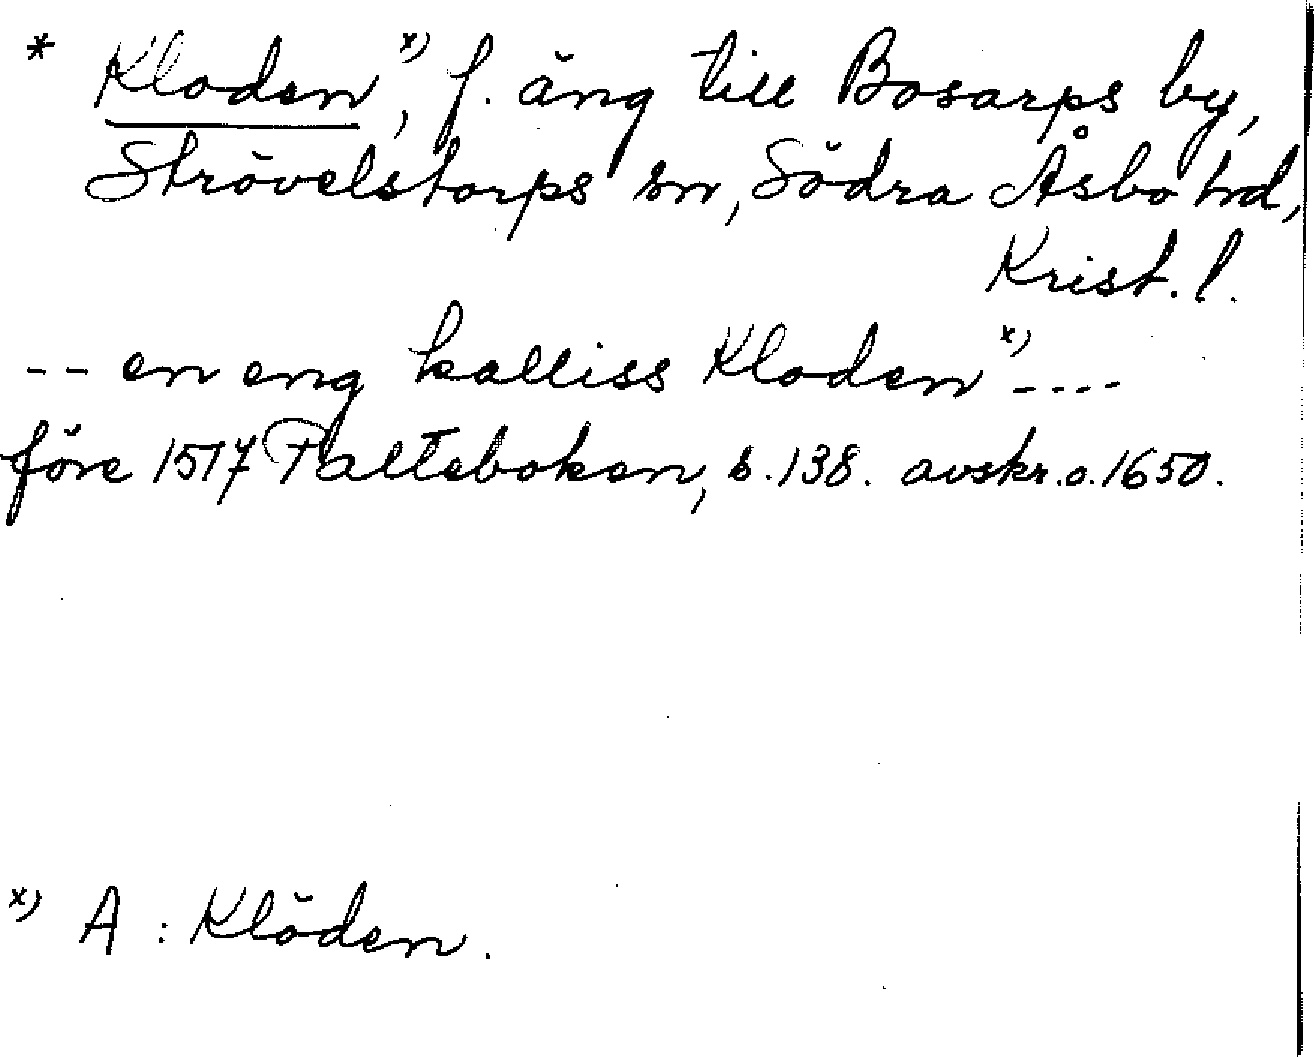 * Kloden x), f. äng till Bosarps by,
Strövelstorps sn, Södra Åsbo hd,
Krist. l.
-- en eng kalliss Kloden x) ----
före 1517 Palteboken, s. 138. avskr. o. 1650.
x) A : Klöden.